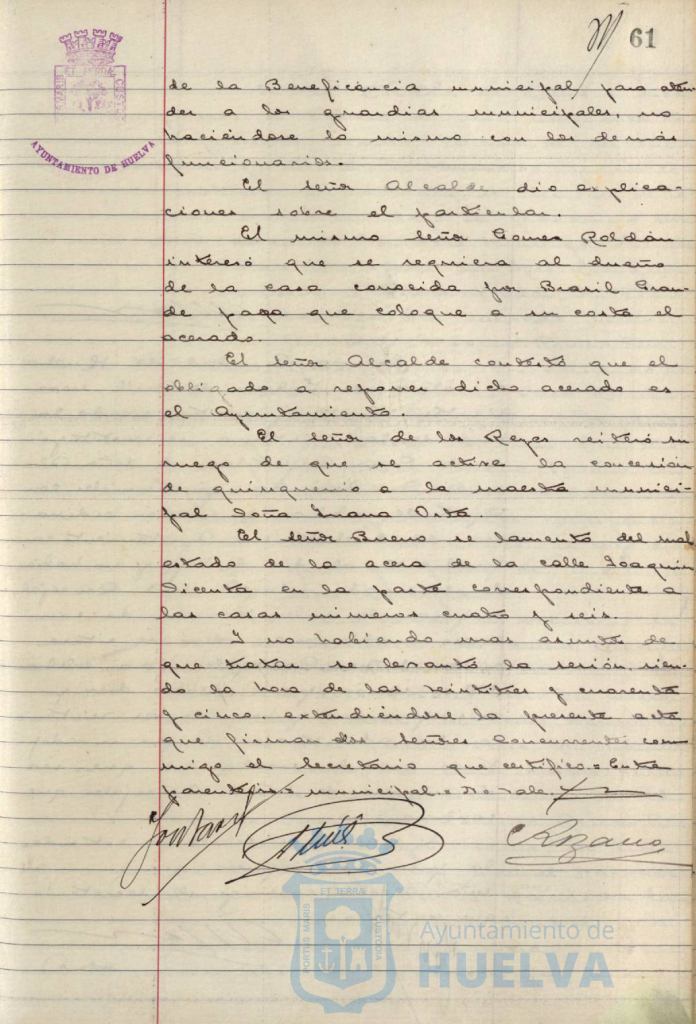 61
AYUNTAMIENTO DE HUELVA
de la Beneficencia municipal para aten-
der a los guardias municipales, no
haciéndose lo mismo con los demás
funcionarios.
El señor Alcalde dio explica-
ciones sobre el particular.
El mismo señor Gomez Roldán
interesó que se requiera al dueño
de la casa conocida por Brasil Gran-
de para que coloque a su costa el
acerado.
El señor Alcalde contestó que el
obligado a reponer dicho acerado es
el Ayuntamiento.
El señor de los Reyes reiteró su
ruego de que se active la concesión
de quinquenio a la maestra munici-
pal Doña Juana Orta.
El señor Bueno se lamentó del mal
estado de la acera de la calle Joaquin
Dicenta en la parte correspondiente a
las casas números cuatro y seis.
Y no habiendo mas asuntos de
que tratar se levantó la sesión, sien-
do la hora de las veintitres y cuarenta
y cinco, extendiéndose la presente acta
que firman los señores concurrentes con-
migo el Secretario que certifico. = Entre
parentesis = municipal = No vale.
PORTUS MARIS ET TERRÆ CUSTODIA
Ayuntamiento de
HUELVA